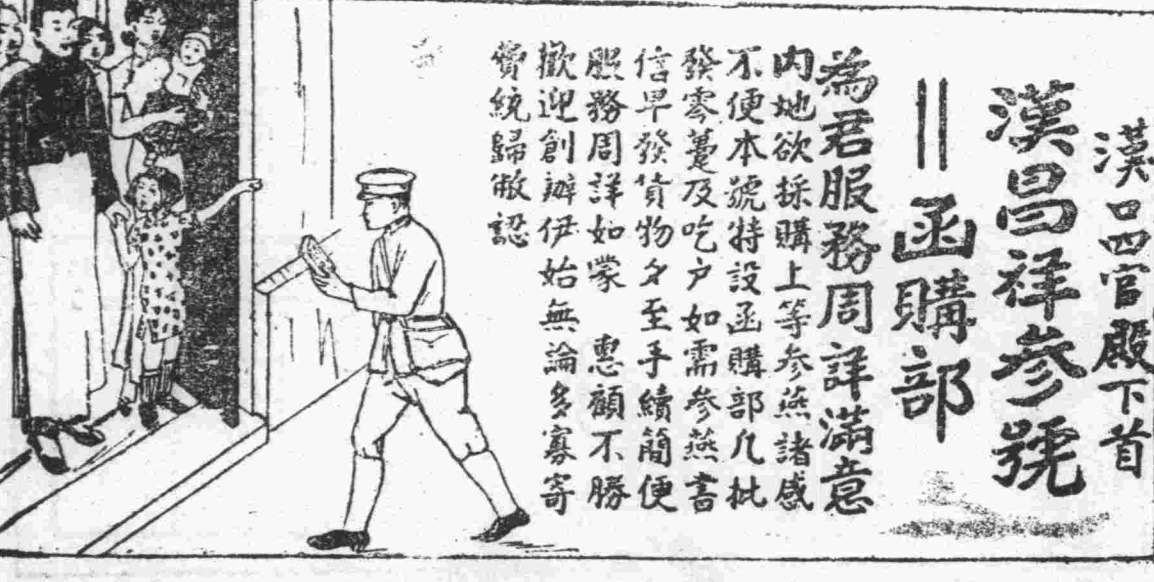 漢口四官殿下首
漢昌祥參號
函購部
為君服務周詳滿意
内地欲採購上等参燕諸感
不便本號特設函購部凡批
發零躉及吃户如需參燕書
信早發貨物夕至手續簡便
服務周詳如蒙 惠顧不勝
歡迎創辦伊始無論多寡寄
費統歸敝認